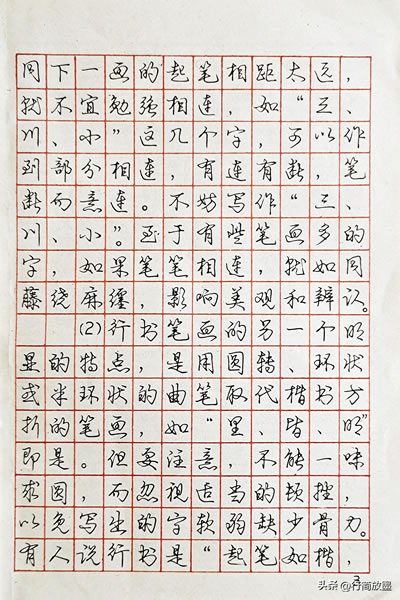 同下一画的起笔相距太远，
就不宜勉强相连，如“三、
川、小”这几个字，可以作
到部分相连，有连有断，笔
断而意连。不妨写作“三、
川、小”。至于有些笔画多的
字，如果笔笔相连，就如同
藤绕麻缠，影响美观和辩认。
(2)行书笔画的另一个明
显的特点，是用圆转、环状
或半环状的曲笔取代楷书方
折的笔画，如“里、皆、明”
即是。但要注意，不能一味
求圆，而忽视适当的顿挫，
以免写出的字软弱缺少骨力。
有人说行书是“起笔如楷，
3
头条@行简放墨